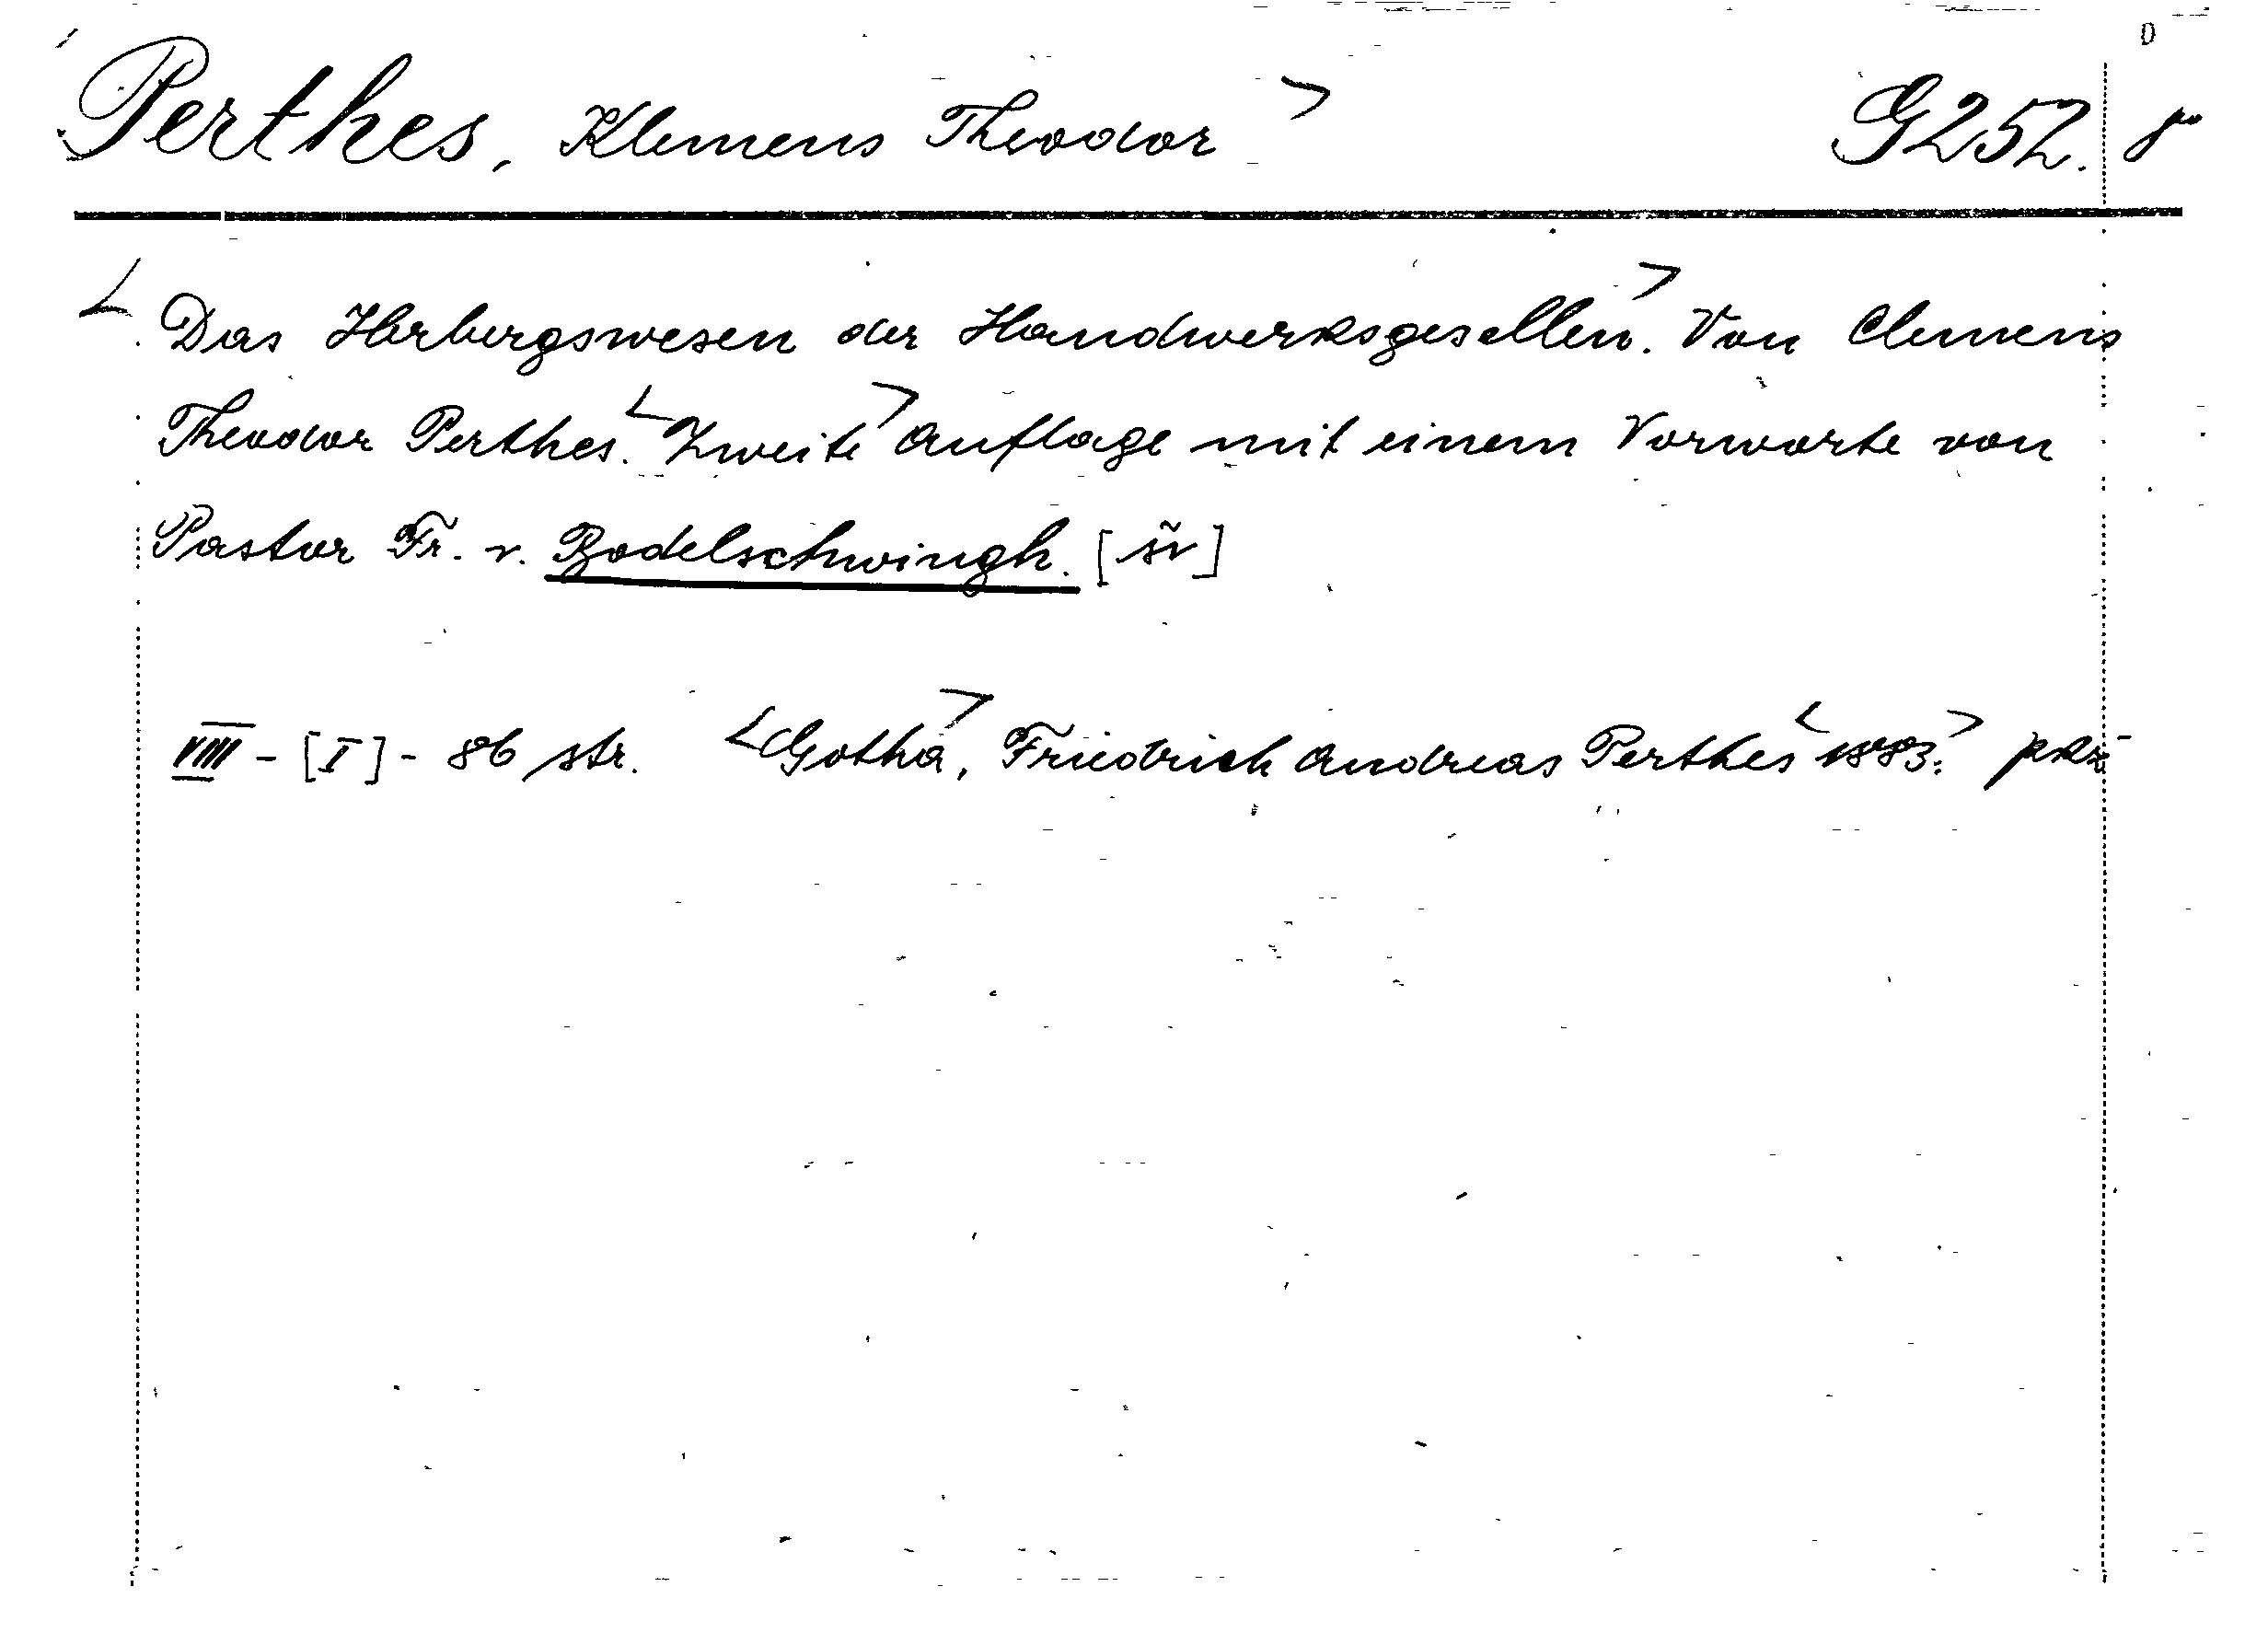 Perthes, Klemens Theodor G252. 8°
Das Herbergswesen der Handwerksgesellen. Von Clemens
Theodor Perthes. Zweite Auflage mit einem Vorworte von
Pastor Fr. v. Bodelschwingh.
VIII - [I] - 86 str. Gotha, Friedrich Andreas Perthes 1883.